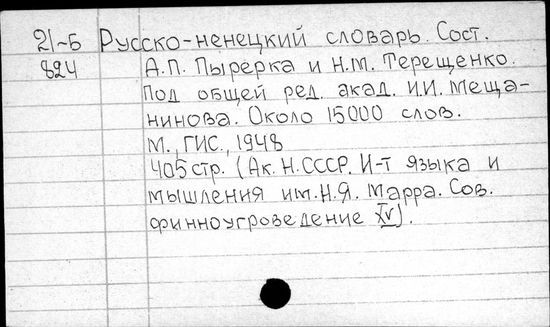 21-Б Русско-ненецкий словарь. Сост.
824 А.П. Пырерка и Н.М. Терещенко.
Под общей ред. акад. И.И. Меща-
нинова. Около 15000 слов.
М., ГИС., 1948
405 стр. (Ак. Н. СССР. И-т языка и
мышления им. Н.Я. Марра. Сов.
финноугроведение XV).